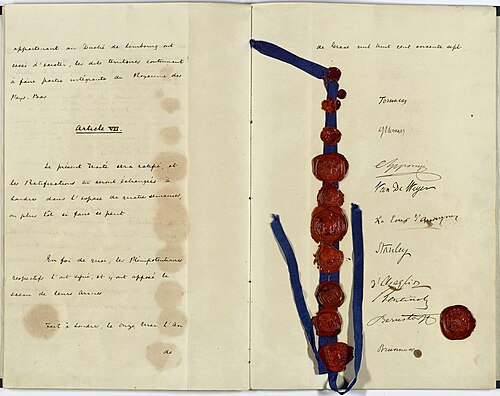 appartenant au Duché de Limbourg ont
cessé d'exister, les dits territoires continuant
à faire partie intégrante du Royaume des
Pays-Bas
Article VII.
Le présent Traité sera ratifié, et
les Ratifications en seront échangées à
Londres dans l'espace de quatre semaines,
ou plus tôt si faire se peut
En foi de quoi, les Plénipotentiaires
respectifs l'ont signé, et y ont apposé le
cachet de leurs Armes
Fait à Londres, le onze Mai l'An
de
de Grace mil huit cent soixante sept
Tornaco
Van De Weyer
La Tour d'Auvergne
Stanley
d'Azeglio
Bentinck
Bernstorff
Brunnow